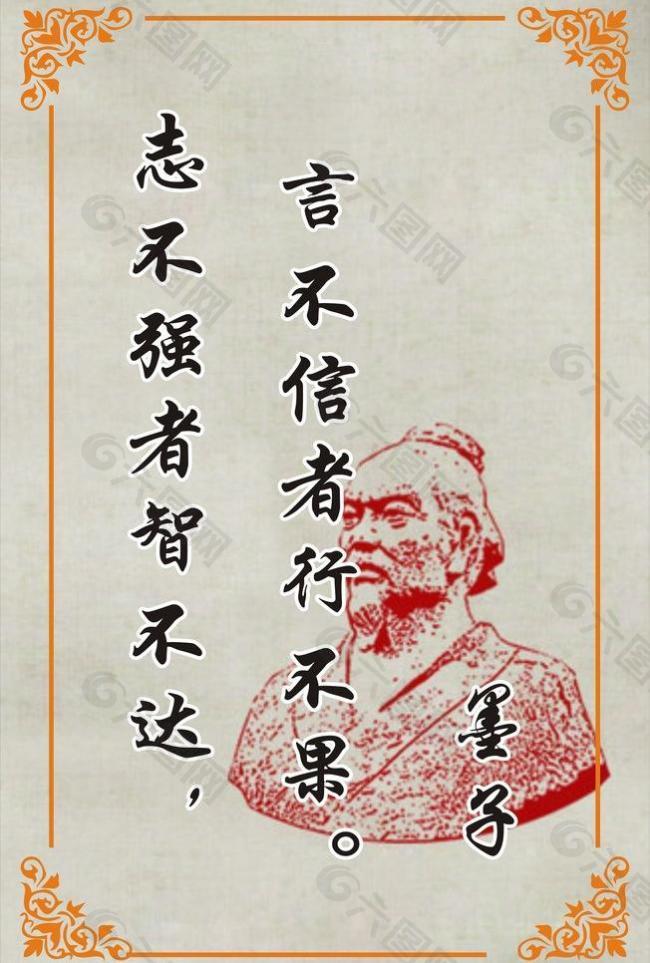 志不强者智不达，
言不信者行不果。
墨子
六图网